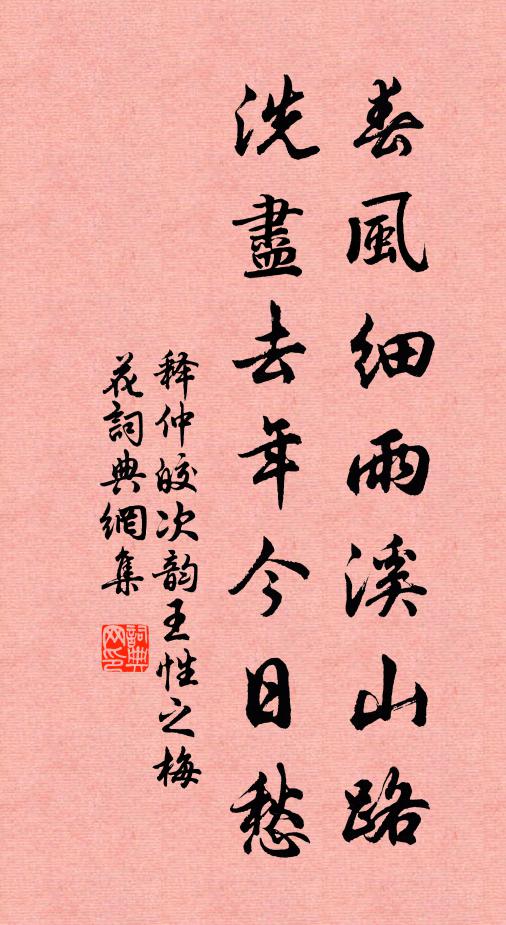 春風細雨溪山路
洗盡去年今日愁
释仲皎次韵王性之梅
花詞典網集
詞典网印